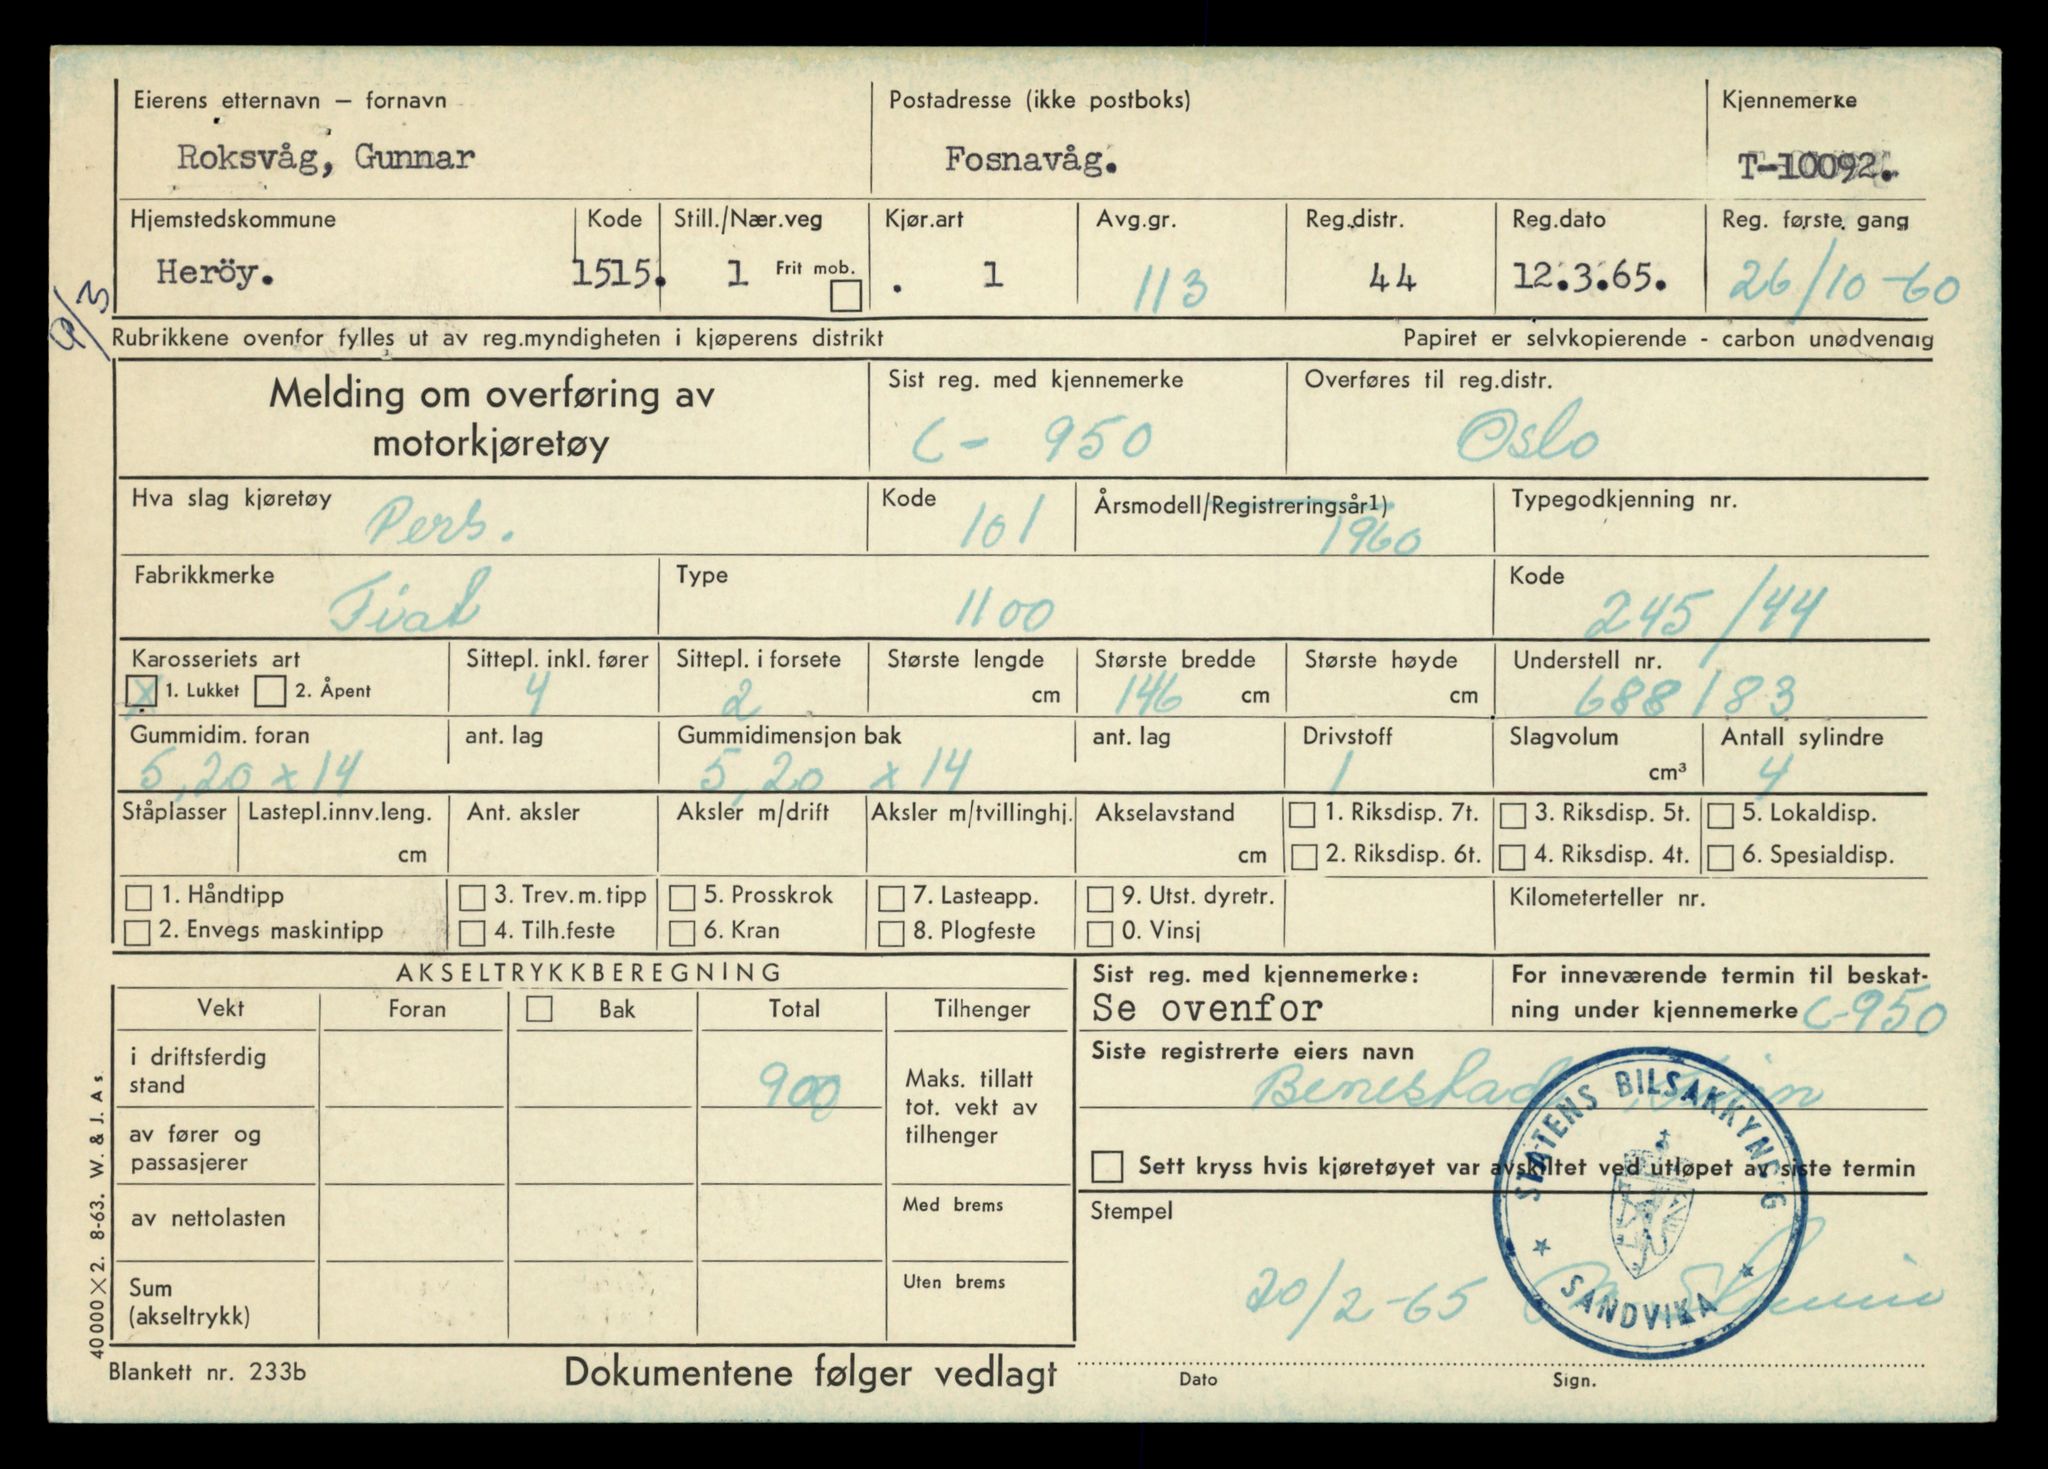 Eierens etternavn – fornavn
Postadresse (ikke postboks)
Kjennemerke
Roksvåg, Gunnar
Fosnavåg.
T-10092.
Hjemstedskommune
Kode
Still./Nær.veg
Kjør.art
Avg.gr.
Reg.distr.
Reg.dato
Reg. første gang
Heröy.
1515.
1
Frit mob.
. 1
113
44
12.3.65.
26/10-60
9/3
Rubrikkene ovenfor fylles ut av reg.myndigheten i kjøperens distrikt
Papiret er selvkopierende - carbon unødvendig
Melding om overføring av
motorkjøretøy
Sist reg. med kjennemerke
C- 950
Overføres til reg.distr.
Oslo
Hva slag kjøretøy
Pers.
Kode
101
Årsmodell/Registreringsår1)
1960
Typegodkjenning nr.
Fabrikkmerke
Fiat
Type
1100
Kode
245/44
Karosseriets art
X 1. Lukket 2. Åpent
Sittepl. inkl. fører
4
Sittepl. i forsete
2
Største lengde
cm
Største bredde
146 cm
Største høyde
cm
Understell nr.
688183
Gummidim. foran
5,20 x 14
ant. lag
Gummidimensjon bak
5,20 x 14
ant. lag
Drivstoff
1
Slagvolum
cm³
Antall sylindre
4
Ståplasser
Lastepl.innv.leng.
cm
Ant. aksler
Aksler m/drift
Aksler m/tvillinghj.
Akselavstand
cm
1. Riksdisp. 7t.
3. Riksdisp. 5t.
5. Lokaldisp.
2. Riksdisp. 6t.
4. Riksdisp. 4t.
6. Spesialdisp.
1. Håndtipp
3. Trev.m.tipp
5. Prosskrok
7. Lasteapp.
9. Utst. dyretr.
Kilometerteller nr.
2. Envegs maskintipp
4. Tilh.feste
6. Kran
8. Plogfeste
0. Vinsj
AKSELTRYKKBEREGNING
Vekt
Foran
Bak
Total
Tilhenger
i driftsferdig
stand
900
Maks. tillatt
tot. vekt av
tilhenger
av fører og
passasjerer
av nettolasten
Med brems
Sum
(akseltrykk)
Uten brems
Sist reg. med kjennemerke:
Se ovenfor
For inneværende termin til beskat-
ning under kjennemerke C-950
Siste registrerte eiers navn
Benestad
Sett kryss hvis kjøretøyet var avskiltet ved utløpet av siste termin
Stempel
STATENS BILSAKKYNDIG
SANDVIKA
20/2-65
Dato
Sign.
40 000 × 2. 8-63. W. & J. A s.
Blankett nr. 233b
Dokumentene følger vedlagt